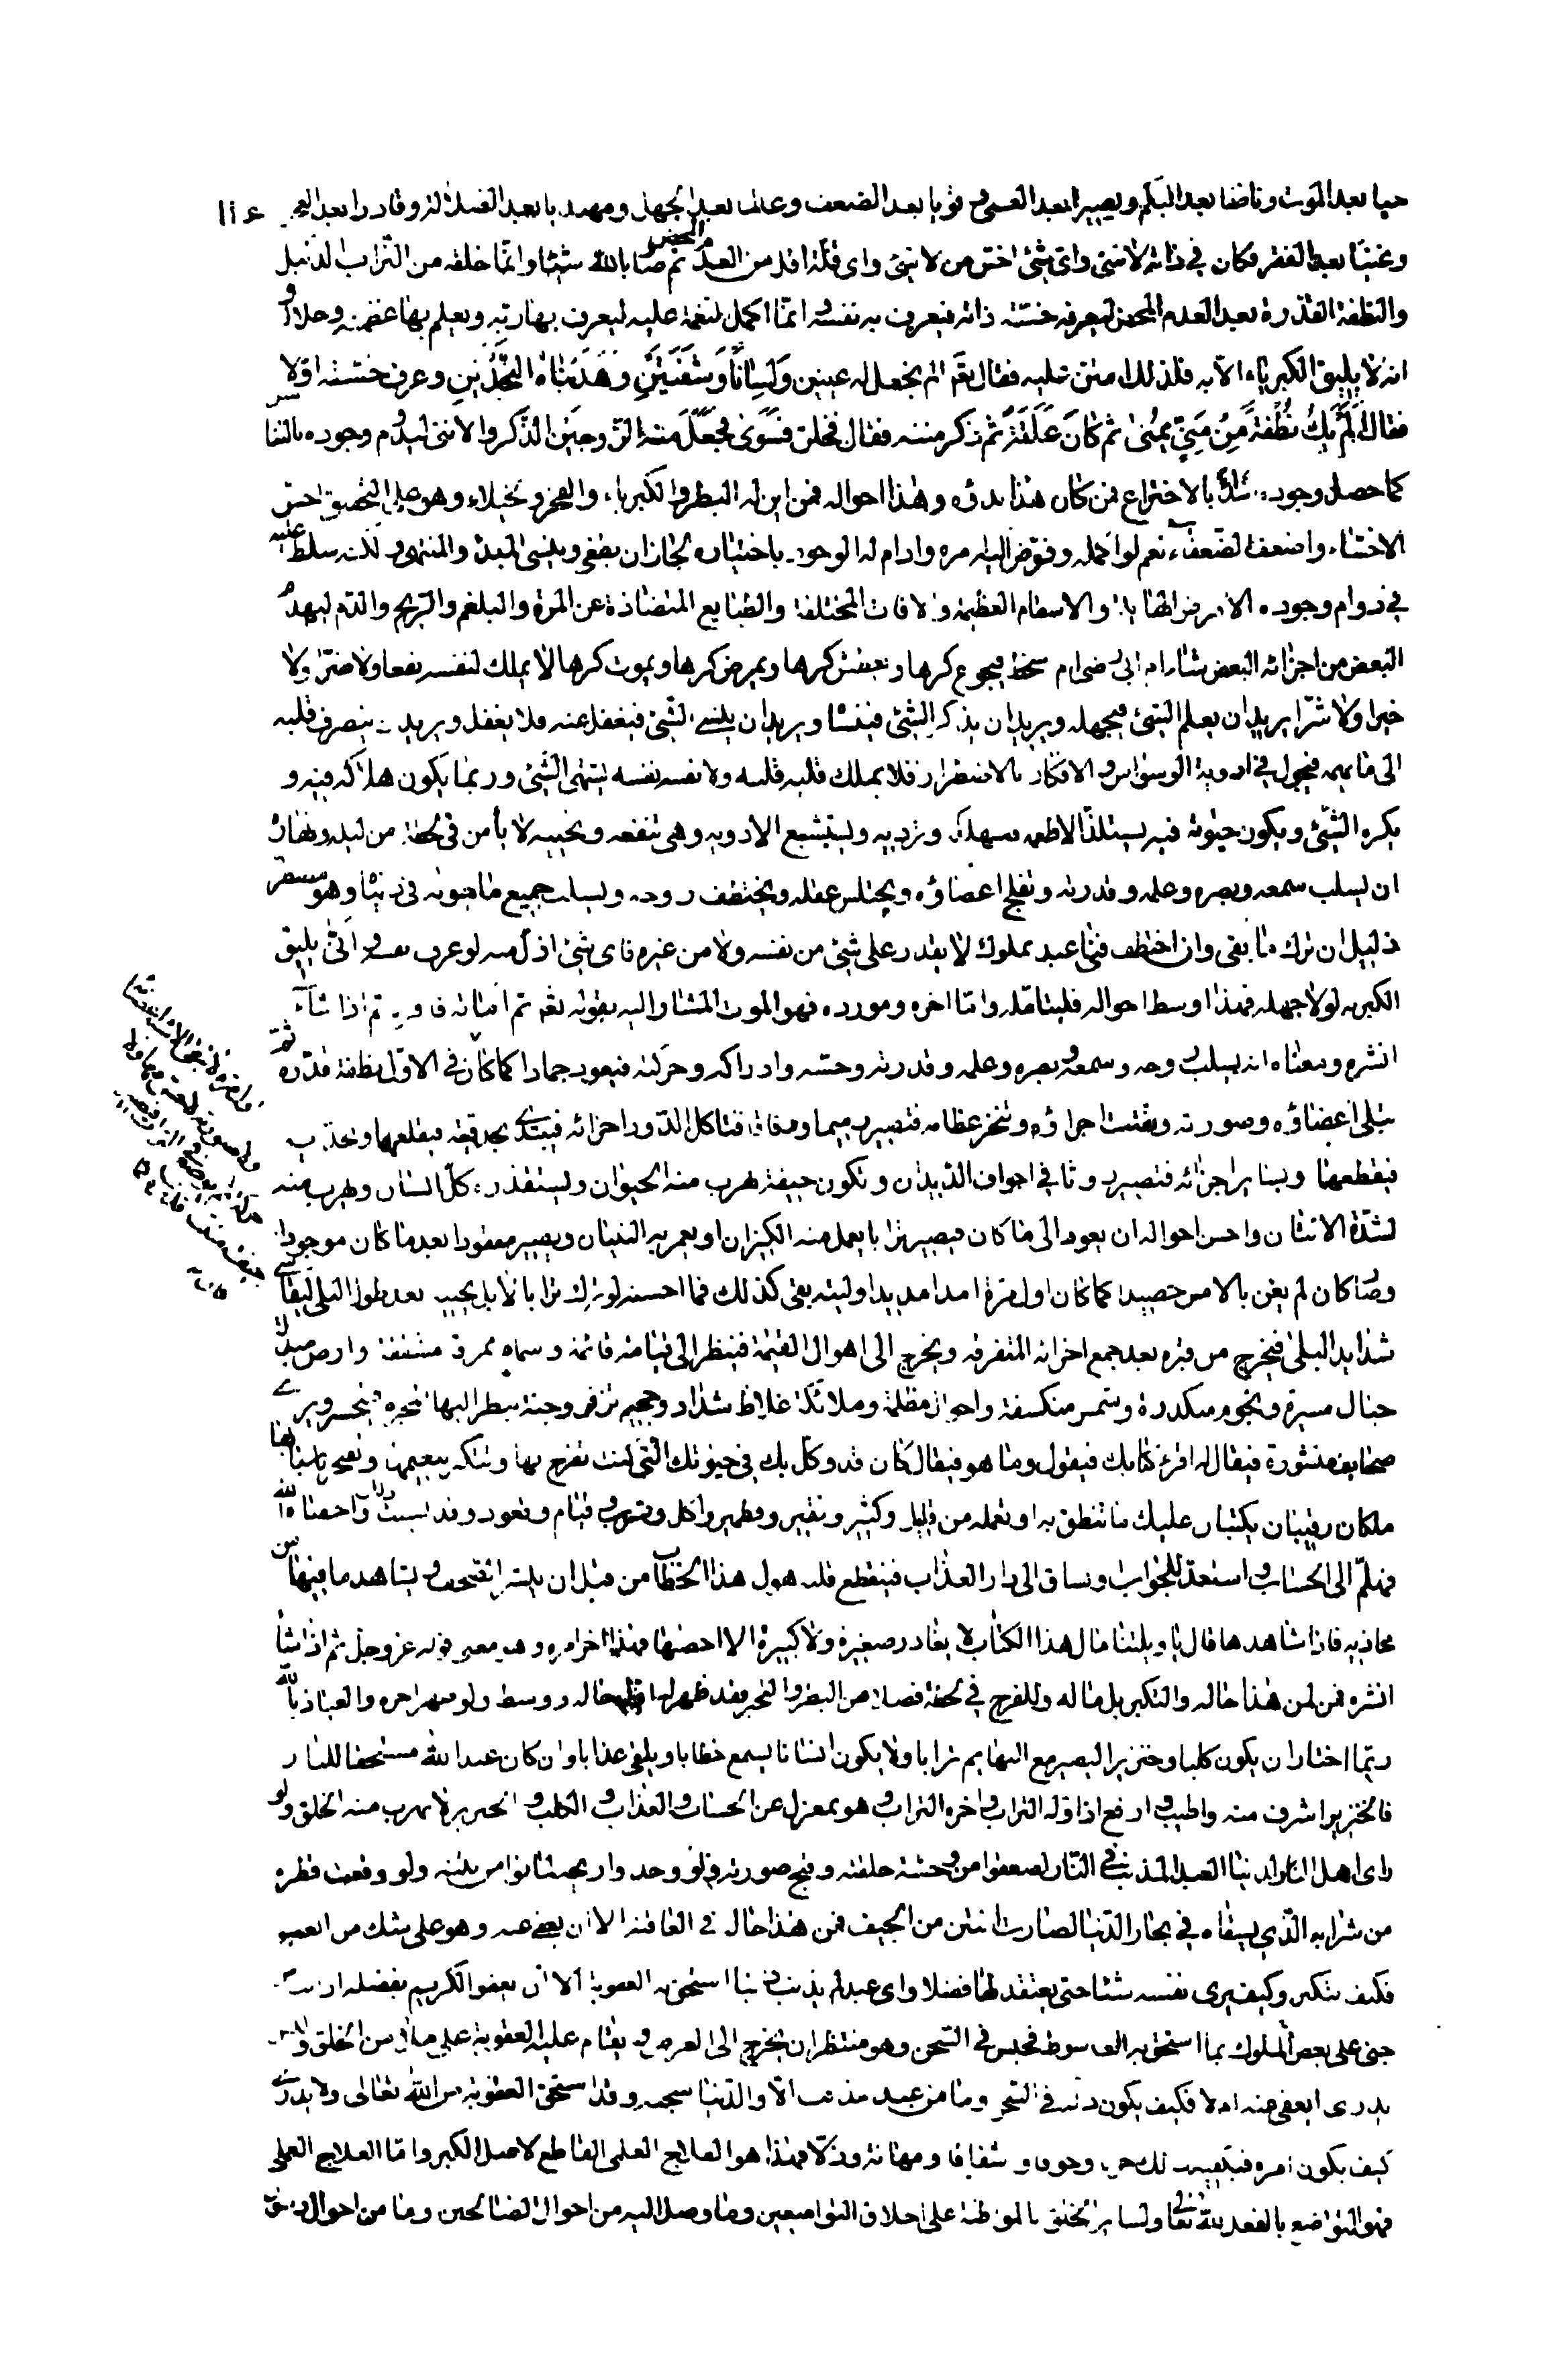 حيا بعد الموت وناطقا بعد البكم وبصيرا بعد العمى وقويا بعد الضعف وعالما بعد الجهل ومهديا بعد الضلالة وقادرا بعد العجز
وغنيا بعد الفقر فكان في ذاته لا شئ واى شئ اخس من لا شئ واى قلة اقل من العدم المحض ثم صار بالله شيئا وانما خلقه من التراب الذليل
والنطفة القذرة بعد العدم المحض ليعرفه خسة ذاته فيعرف به نفسه وانما اكمل النعمة عليه ليعرف بها ربه ويعلم بها عظمته وجلاله و
انه لا يليق الكبرياء الا به فلذلك امتن عليه فقال تعم الم نجعل له عينين وَلِسٰانًا وَشَفَتَيْنِ وَهَدَيْنٰاهُ النَّجْدَيْنِ وعرف خسته اولا
فقال اَلَمْ يَكُ نُطْفَةً مِنْ مَنِيٍّ يُمْنىٰ ثم كٰانَ عَلَقَةً ثم ذكر مننه فقال فخلق فَسَوّىٰ فجَعَلَ منه الزوجَيْن الذكر والانثى ليدوم وجوده بالتناسل
كما حصل وجوده بالاختراع فمن كان هذا بدؤه وهذا احواله فمن اين له البطر والكبرياء والفخر والخيلاء وهو على التحقيق اخس
الاخساء واضعف الضعفاء نعم لو اكمله وفوض اليه امره وادام له الوجود باختياره لجاز ان يطغى وينسى المبدء والمنتهى ولكنه سلط عليه
في دوام وجوده الامراض الهايلة والاسقام العظيمة والافات المختلفة والطبايع المتضادة من المرة والبلغم والريح والدم ليهدم
البعض من اجزائه البعض شاء ام ابى رضى ام سخط فيجوع كرها ويعطش كرها ويمرض كرها ويموت كرها لا يملك لنفسه نفعا ولا ضرا ولا
خيرا ولا شرا يريد ان يعلم الشئ فيجهله ويريد ان يذكر الشئ فينساه ويريد ان ينسى الشئ فيغفل عنه فلا يغفل ويريد ان ينصرف قلبه
الى ما يهمه فيجول في اودية الوسواس والافكار بالاضطرار فلا يملك قلبه قلبه ولا نفسه نفسه يشتهى الشئ وربما يكون هلاكه فيه و
يكره الشئ ويكون حيوته فيه يستلذ الاطعمة وتهلكه وترديه ويستبشع الادوية وهى تنفعه وتحييه لا يأمن في لحظة من ليله ونهاره
ان يسلب سمعه وبصره وعلمه وقدرته وتفلج اعضاؤه ويختلس عقله ويختطف روحه ويسلب جميع ما يهواه في دنياه وهو مضطر
ذليل ان ترك ما بقى وان اختطف فنى عبد مملوك لا يقدر على شئ من نفسه ولا من غيره فاى شئ اذل منه لو عرف نفسه وانى يليق
الكبر به لولا جهله فهذا اوسط احواله فليتامله واما اخره ومورده فهو الموت المشار اليه بقوله تعم ثم اماته فاقبره ثم اذا شاء
انشره ومعناه انه يسلب روحه وسمعه وبصره وعلمه وقدرته وحسه وادراكه وحركته فيعود جمادا كما كان في الاول نطفة قذرة ثم
تبلى اعضاؤه وصورته وتفتت اجزاؤه وتنخر عظامه فتصير رميما ورفاتا فتاكل الدود اجزائه فيبتدى بحدقتيه فيقلعهما وبخديه
فيقطعهما وبساير اجزائه فتصير روثا في اجواف الديدان وتكون جيفة تهرب منه الحيوان ويستقذره كل انسان ويهرب منه
لشدة الانتان واحسن احواله ان يعود الى ما كان فيصير ترابا يعمل منه الكيزان او يعمر به البنيان ويصير مفقودا بعد ما كان موجودا
وصار كان لم يغن بالامس حصيدا كما كان اول مرة امدا مديدا وليته بقى كذلك فما احسنه لو ترك ترابا لا بل يحييه بعد طول البلى ليقاسى
شدايد البلى فيخرج من قبره بعد جمع اجزائه المتفرقة ويخرج الى اهوال القيمة فينظر الى قيامة قائمة وسماء ممزقة مشققة وارض مبدلة
وجبال مسيرة ونجوم منكدرة وشمس منكسفة واحوال مظلمة وملائكة غلاظ شداد وجحيم تزفر وجنة ينظر اليها المجرم فيتحسر ويرى
صحايف منشورة فيقال له اقرء كتابك فيقول وما هو فيقال كان قد وكل بك في حيوتك التى كنت تفرح بها وتتكبر بنعيمها وتفتخر باسبابها
ملكان رقيبان يكتبان عليك ما تنطق به او تعمله من قليل وكثير ونقير وقطمير واكل وشرب وقيام وقعود وقد نسيت ذلك واحصاه الله
فهلم الى الحساب واستعد للجواب او تساق الى دار العذاب فينقطع قلبه هول هذا الخطاب من قبل ان ينشر الصحف ويشاهد ما فيها من
مخازيه فاذا شاهدها قال يا ويلتنا مال هذا الكتاب لا يغادر صغيرة ولا كبيرة الا احصاها فهذا اخر امره وهو معنى قوله عز وجل ثم اذا شاء
انشره فمن هذا حاله والتكبر بل ما له وللفرح في لحظة فضلا من البطر والتجبر فقد ظهر له اول حاله ووسطه ولو ظهر اخره والعياذ بالله
ربما اختار ان يكون كلبا وخنزيرا ليصير مع البهايم ترابا ولا يكون انسانا يسمع خطابا ويلقى عذابا وان كان عند الله مستحقا للنار
فالخنزير اشرف منه واطيب وارفع اذ اوله التراب واخره التراب وهو بمعزل عن الحساب والعذاب والكلب والخنزير لا يهرب منه الخلق ولو
راى اهل الدنيا العبد المذنب في النار لصعقوا من وحشة خلقته وقبح صورته ولو وجدوا ريحه لماتوا من نتنه ولو وقعت قطرة
من شرابه الذي يسقاه في بحار الدنيا لصارت انتن من الجيف فمن هذا حاله في العاقبة الا ان يعفى عنه وهو على شك من العفو
فكيف يتكبر وكيف يرى نفسه شيئا حتى يعتقد لها فضلا واى عبد لم يذنب ذنبا استحق به العقوبة الا ان يعفو الكريم بفضله
جنى على بعض الملوك بما استحق به الف سوط فحبس في السجن وهو منتظر ان يخرج الى العرض ويقام عليه العقوبة على ملاء من الخلق وليس
يدرى ايعفى عنه ام لا فكيف يكون ذله في السجن وما من عبد مذنب الا والدنيا سجنه وقد استحق العقوبة من الله تعالى ولا يدرى
كيف يكون امره فيكفيه ذلك حزنا وخوفا واشفاقا ومهانة وذلا فهذا هو العلاج العلمى القاطع لاصل الكبر واما العلاج العملى
فهو التواضع بالفعل لله تعالى ولساير الخلق بالمواظبة على اخلاق المتواضعين وما وصل اليه من احوال الصالحين وما من احوال